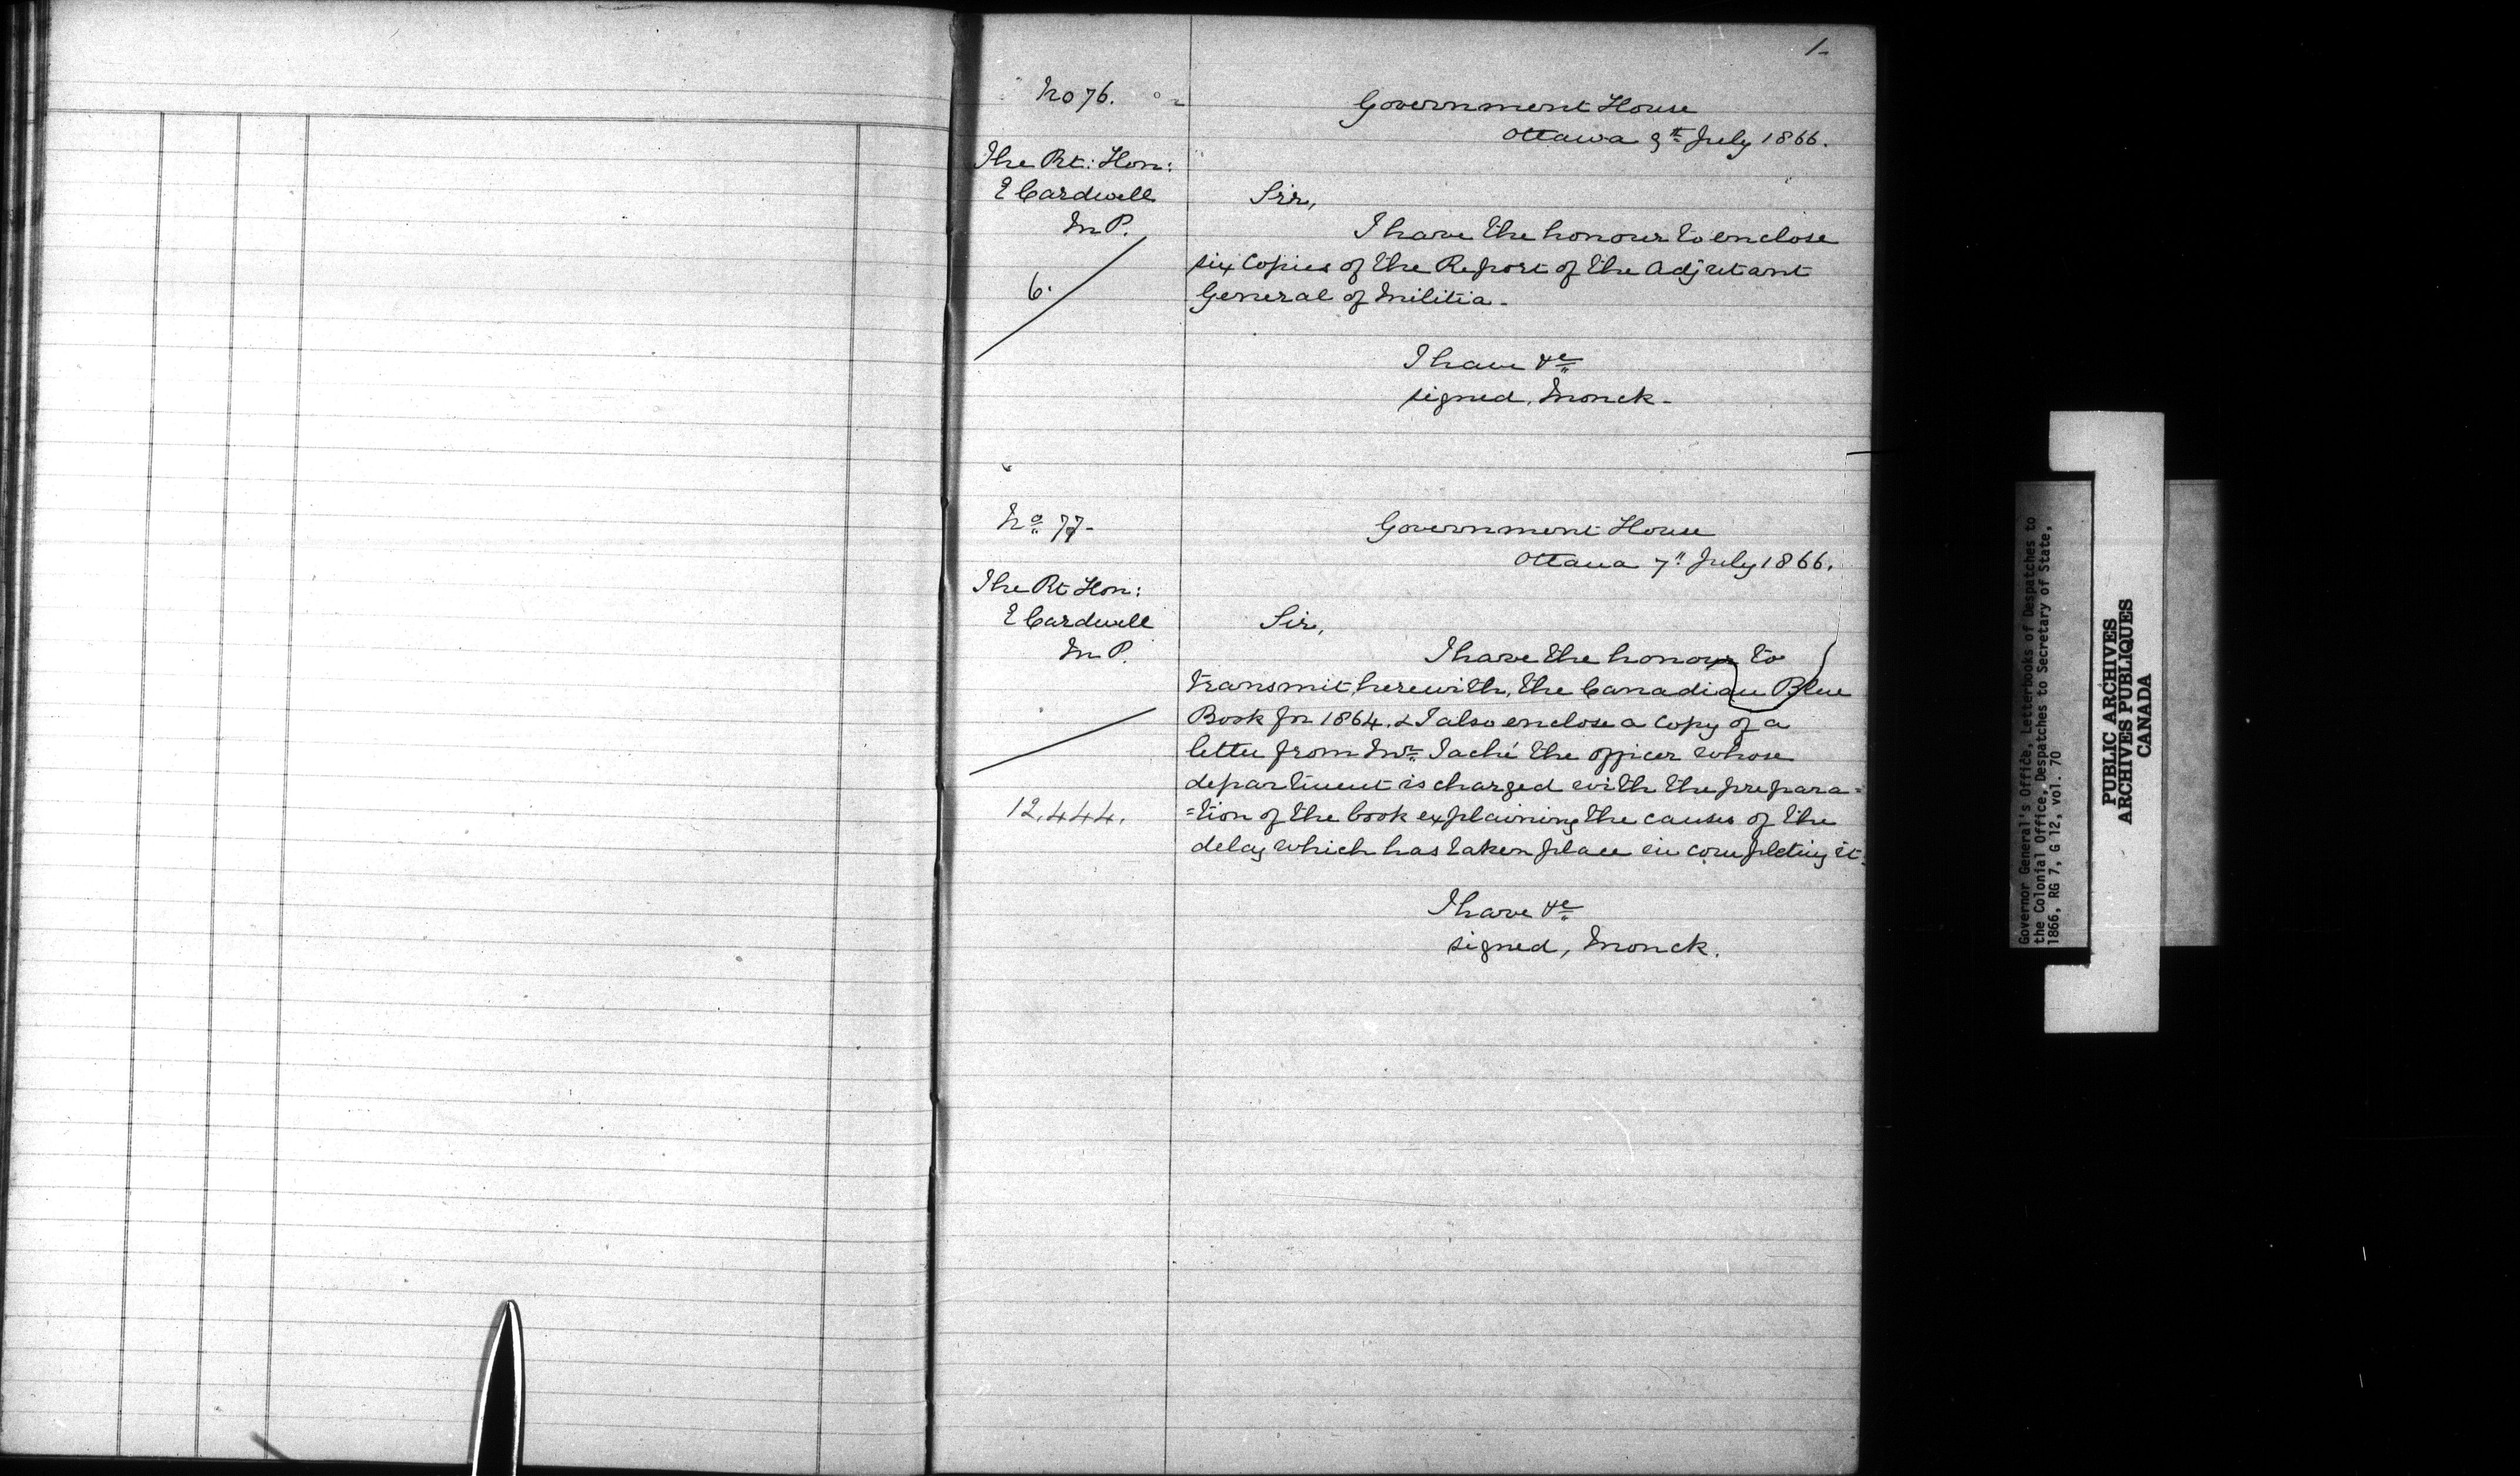 1-
No 76.
Government House
Ottawa 3rd July 1866.
The Rt: Hon:
E Cardwell
M P.
6.
Sir,
I have the honour to enclose
six copies of the Report of the Adjutant
General of Militia-
I have &c
signed, Monck-
No. 77-
Government House
Ottawa 7" July 1866.
The Rt Hon:
E Cardwell
M P.
12,444.
Sir,
I have the honour to
transmit, herewith, the Canadian Blue
Book for 1864. & I also enclose a copy of a
letter from Mr. Taché the officer whose
department is charged with the prepara=
=tion of the book explaining the causes of the
delay which has taken place in completing it.
I have &c
signed, Monck.
Governor General's Office, Letterbooks of Despatches to
the Colonial Office, Despatches to Secretary of State,
1866, RG 7, G 12, vol. 70
PUBLIC ARCHIVES
ARCHIVES PUBLIQUES
CANADA